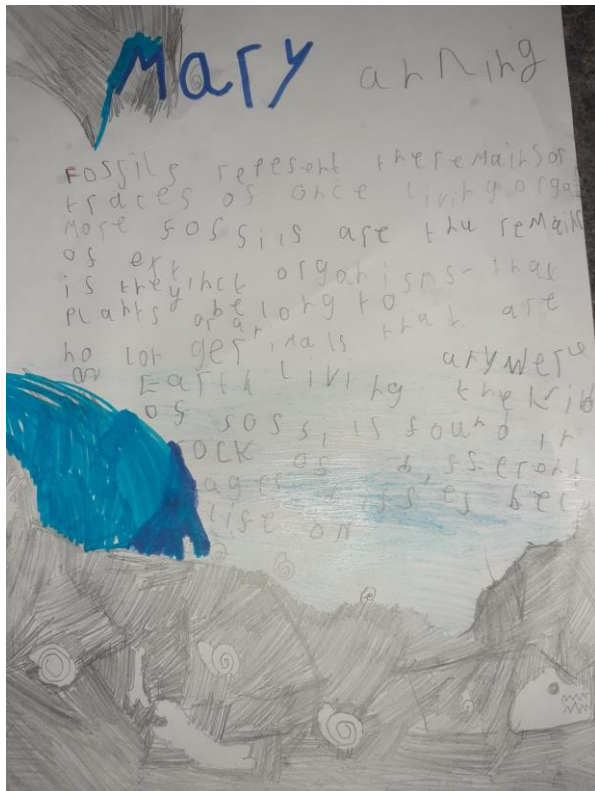 Mary anning
Fossils repesent the remains or
traces of once living orga
More fossils are the remain
of ext
is they inct organisms - that
plants belong to are
or an
no longer imals that anywere
on Earth living the kid
of fossils found in
rock of different
ages differes bec
life on